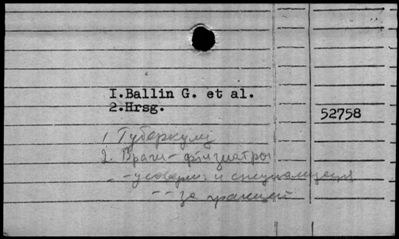 I.Ballin G. et al.
2.Hrsg.
52758
1. Туберкулез
2. Врачи - фтизиатры
- - усоверш. и специализация
- - за границей